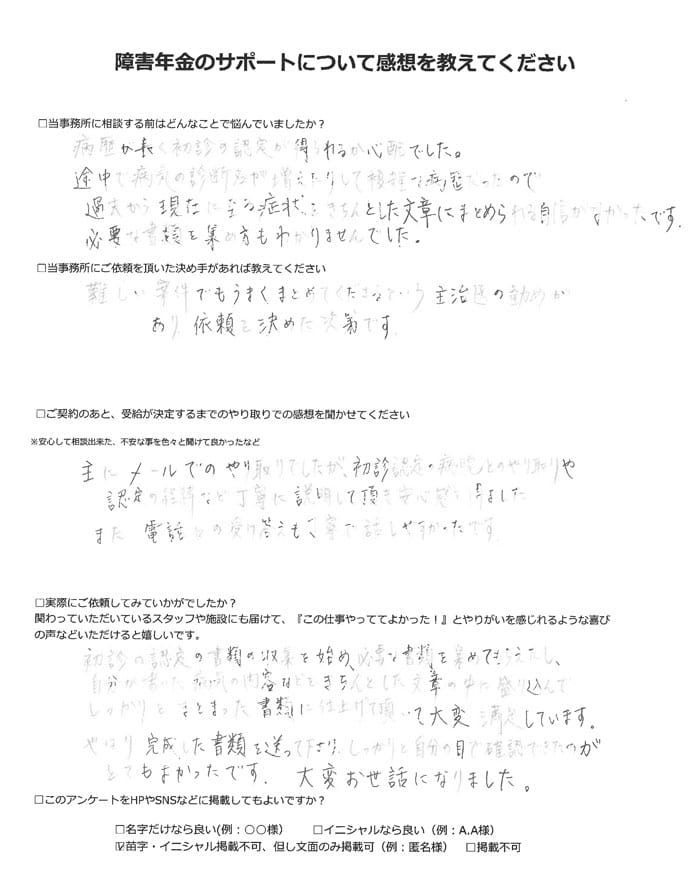 障害年金のサポートについて感想を教えてください
□当事務所に相談する前はどんなことで悩んでいましたか？
病歴が長く初診の認定が得られるか心配でした。
途中で病気の診断名が増えたりして複雑な病歴だったので
過去から現在に至る症状をきちんとした文章にまとめられる自信がなかったです.
必要な書類を集め方もわかりませんでした。
□当事務所にご依頼を頂いた決め手があれば教えてください
難しい案件でもうまくまとめてくださるという主治医の勧めが
あり 依頼を決めた次第です.
□ご契約のあと、受給が決定するまでのやり取りでの感想を聞かせてください
※安心して相談出来た、不安な事を色々と聞けて良かったなど
主にメールでのやり取りでしたが、初診認定の病院とのやり取りや
認定の経緯など丁寧に説明して頂き安心感を得ました
また 電話での受け答えも丁寧で話しやすかったです.
□実際にご依頼してみていかがでしたか？
関わっていただいているスタッフや施設にも届けて、『この仕事やっててよかった！』とやりがいを感じれるような喜び
の声などいただけると嬉しいです。
初診の認定の書類の収集を始め、必要な書類を集めてもらえたし、
自分が書いた病気の内容などをきちんとした文章の中に盛り込んで
しっかりと まとまった書類に仕上げて頂いて大変 満足しています。
やはり 完成した書類を送って下さり、しっかりと自分の目で確認できたのが
とてもよかったです. 大変お世話になりました。
□このアンケートをHPやSNSなどに掲載してもよいですか？
□名字だけなら良い(例：〇〇様) □イニシャルなら良い（例：A.A様）
☑苗字・イニシャル掲載不可、但し文面のみ掲載可（例：匿名様） □掲載不可